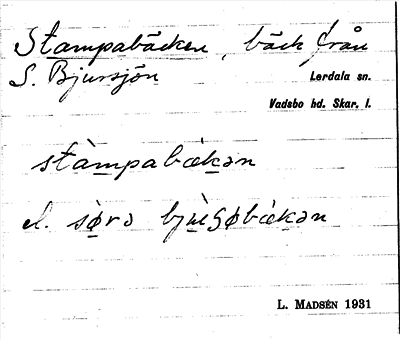 Stampabäcken, bäck från
S. Bjursjön
Lerdala sn.
Vadsbo hd. Skar. l.
stàmpabækən
el. sørə
L. MADSÉN 1931